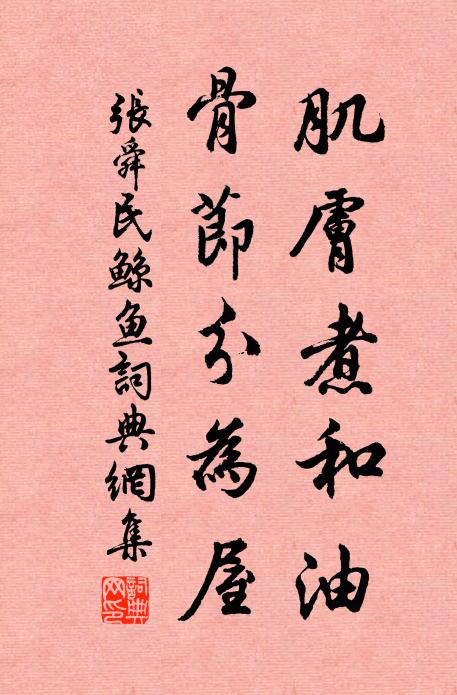 肌膚煮和油
骨節分為屋
張舜民鯨魚詞典網集
詞典網印